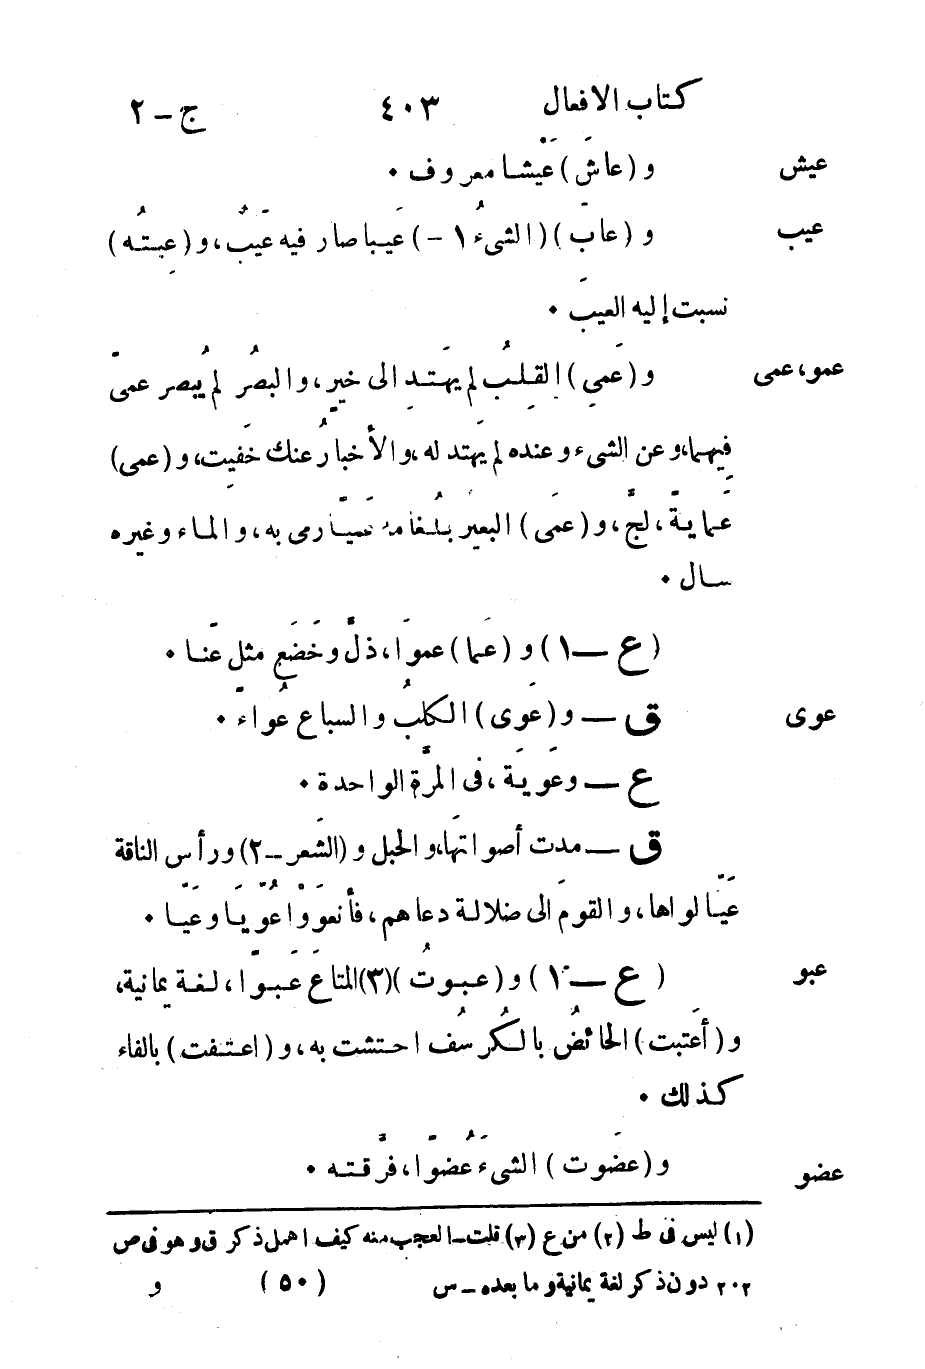 كتاب الافعال ٤٠٣ ج – ٢
عيش و (عاشَ) عَيْشا معروف ٠
عيب و (عابَ) (الشيءُ ١ –) عَيبا صار فيه عَيبٌ، و (عِبتُه)
نسبت إليه العيبَ ٠
عمو، عمى و (عَمِى) القلبُ لم يهتَدِ الى خيرٍ، والبصرُ لم يُبصر عمىً
فيهما، وعن الشىء وعنده لم يَهتدِ له، والأخبارُ عنك خَفِيت، و (عمى)
عَمايةً، لجَّ، و (عمَى) البعيرُ بلُغامه عَميًا رمى به، والماء وغيره
سال ٠
(ع – ١) و (عَما) عموًا، ذلَّ وخَضَع مثل عَنا ٠
عوى ق – و (عَوى) الكلبُ والسباع عُواءً ٠
ع – وعَويَة، فى المرَّة الواحدة ٠
ق – مدت أصواتَها، والحبل و (الشَعر – ٢) ورأس الناقة
عَيًّا لواها، والقومَ الى ضلالة دعاهم، فأنعوَوْا عُوِيًّا وعَيًّا ٠
عبو (ع – ١) و (عبوتُ) (٣) المتاعَ عَبوًا، لغة يمانية،
و (أعتَبت) الحائضُ بالكُرسُف احتشت به، و (اعتفت) بالفاء
كذلك ٠
عضو و (عضَوت) الشىءَ عُضوًا، فرَّقته ٠
(١) ليس فى ط (٢) من ع (٣) قلت – العجب منه كيف اهمل ذكر ق وهو فى ص
٢٠٢ دون ذكر لغة يمانية وما بعده – س (٥٠) و